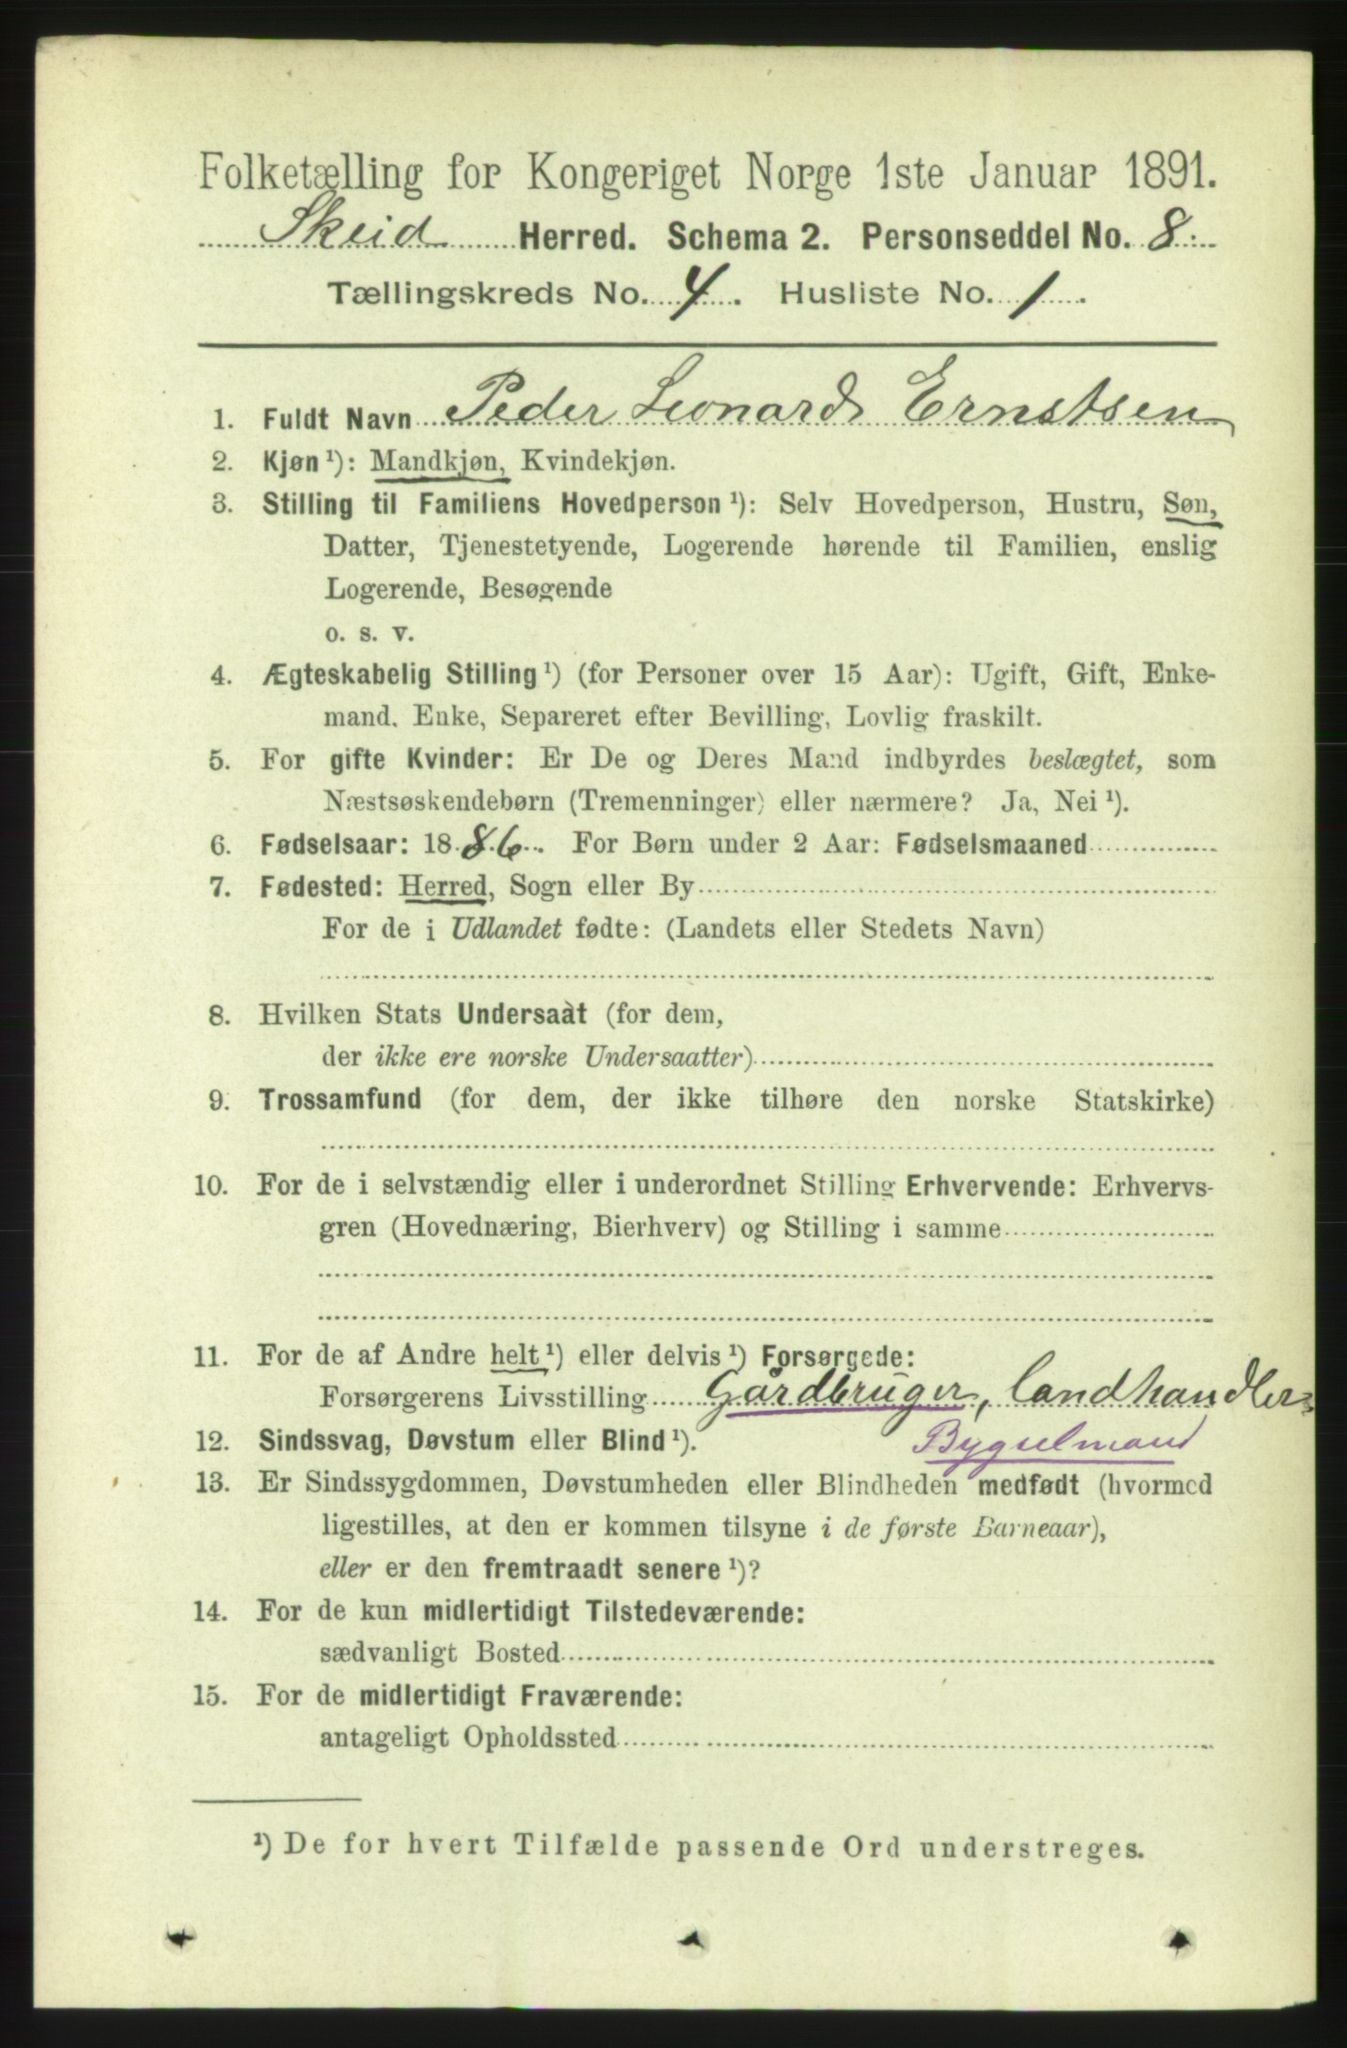 Folketælling for Kongeriget Norge 1ste Januar 1891.
Skeid Herred. Schema 2. Personseddel No. 8.
Tællingskreds No. 4. Husliste No. 1.
1. Fuldt Navn Peder Leonard Ernstsen
2. Kjøn ¹): Mandkjøn, Kvindekjøn.
3. Stilling til Familiens Hovedperson ¹): Selv Hovedperson, Hustru, Søn,
Datter, Tjenestetyende, Logerende hørende til Familien, enslig
Logerende, Besøgende
o. s. v.
4. Ægteskabelig Stilling ¹) (for Personer over 15 Aar): Ugift, Gift, Enke-
mand, Enke, Separeret efter Bevilling, Lovlig fraskilt.
5. For gifte Kvinder: Er De og Deres Mand indbyrdes beslægtet, som
Næstsøskendebørn (Tremenninger) eller nærmere? Ja, Nei ¹).
6. Fødselsaar: 1886. For Børn under 2 Aar: Fødselsmaaned
7. Fødested: Herred, Sogn eller By
For de i Udlandet fødte: (Landets eller Stedets Navn)
8. Hvilken Stats Undersaat (for dem,
der ikke ere norske Undersaatter)
9. Trossamfund (for dem, der ikke tilhøre den norske Statskirke)
10. For de i selvstændig eller i underordnet Stilling Erhvervende: Erhvervs-
gren (Hovednæring, Bierhverv) og Stilling i samme
11. For de af Andre helt ¹) eller delvis ¹) Forsørgede:
Forsørgerens Livsstilling Gårdbruger, landhandler
12. Sindssvag, Døvstum eller Blind ¹). Bygselmand
13. Er Sindssygdommen, Døvstumheden eller Blindheden medfødt (hvormed
ligestilles, at den er kommen tilsyne i de første Barneaar),
eller er den fremtraadt senere ¹)?
14. For de kun midlertidigt Tilstedeværende:
sædvanligt Bosted
15. For de midlertidigt Fraværende:
antageligt Opholdssted
¹) De for hvert Tilfælde passende Ord understreges.